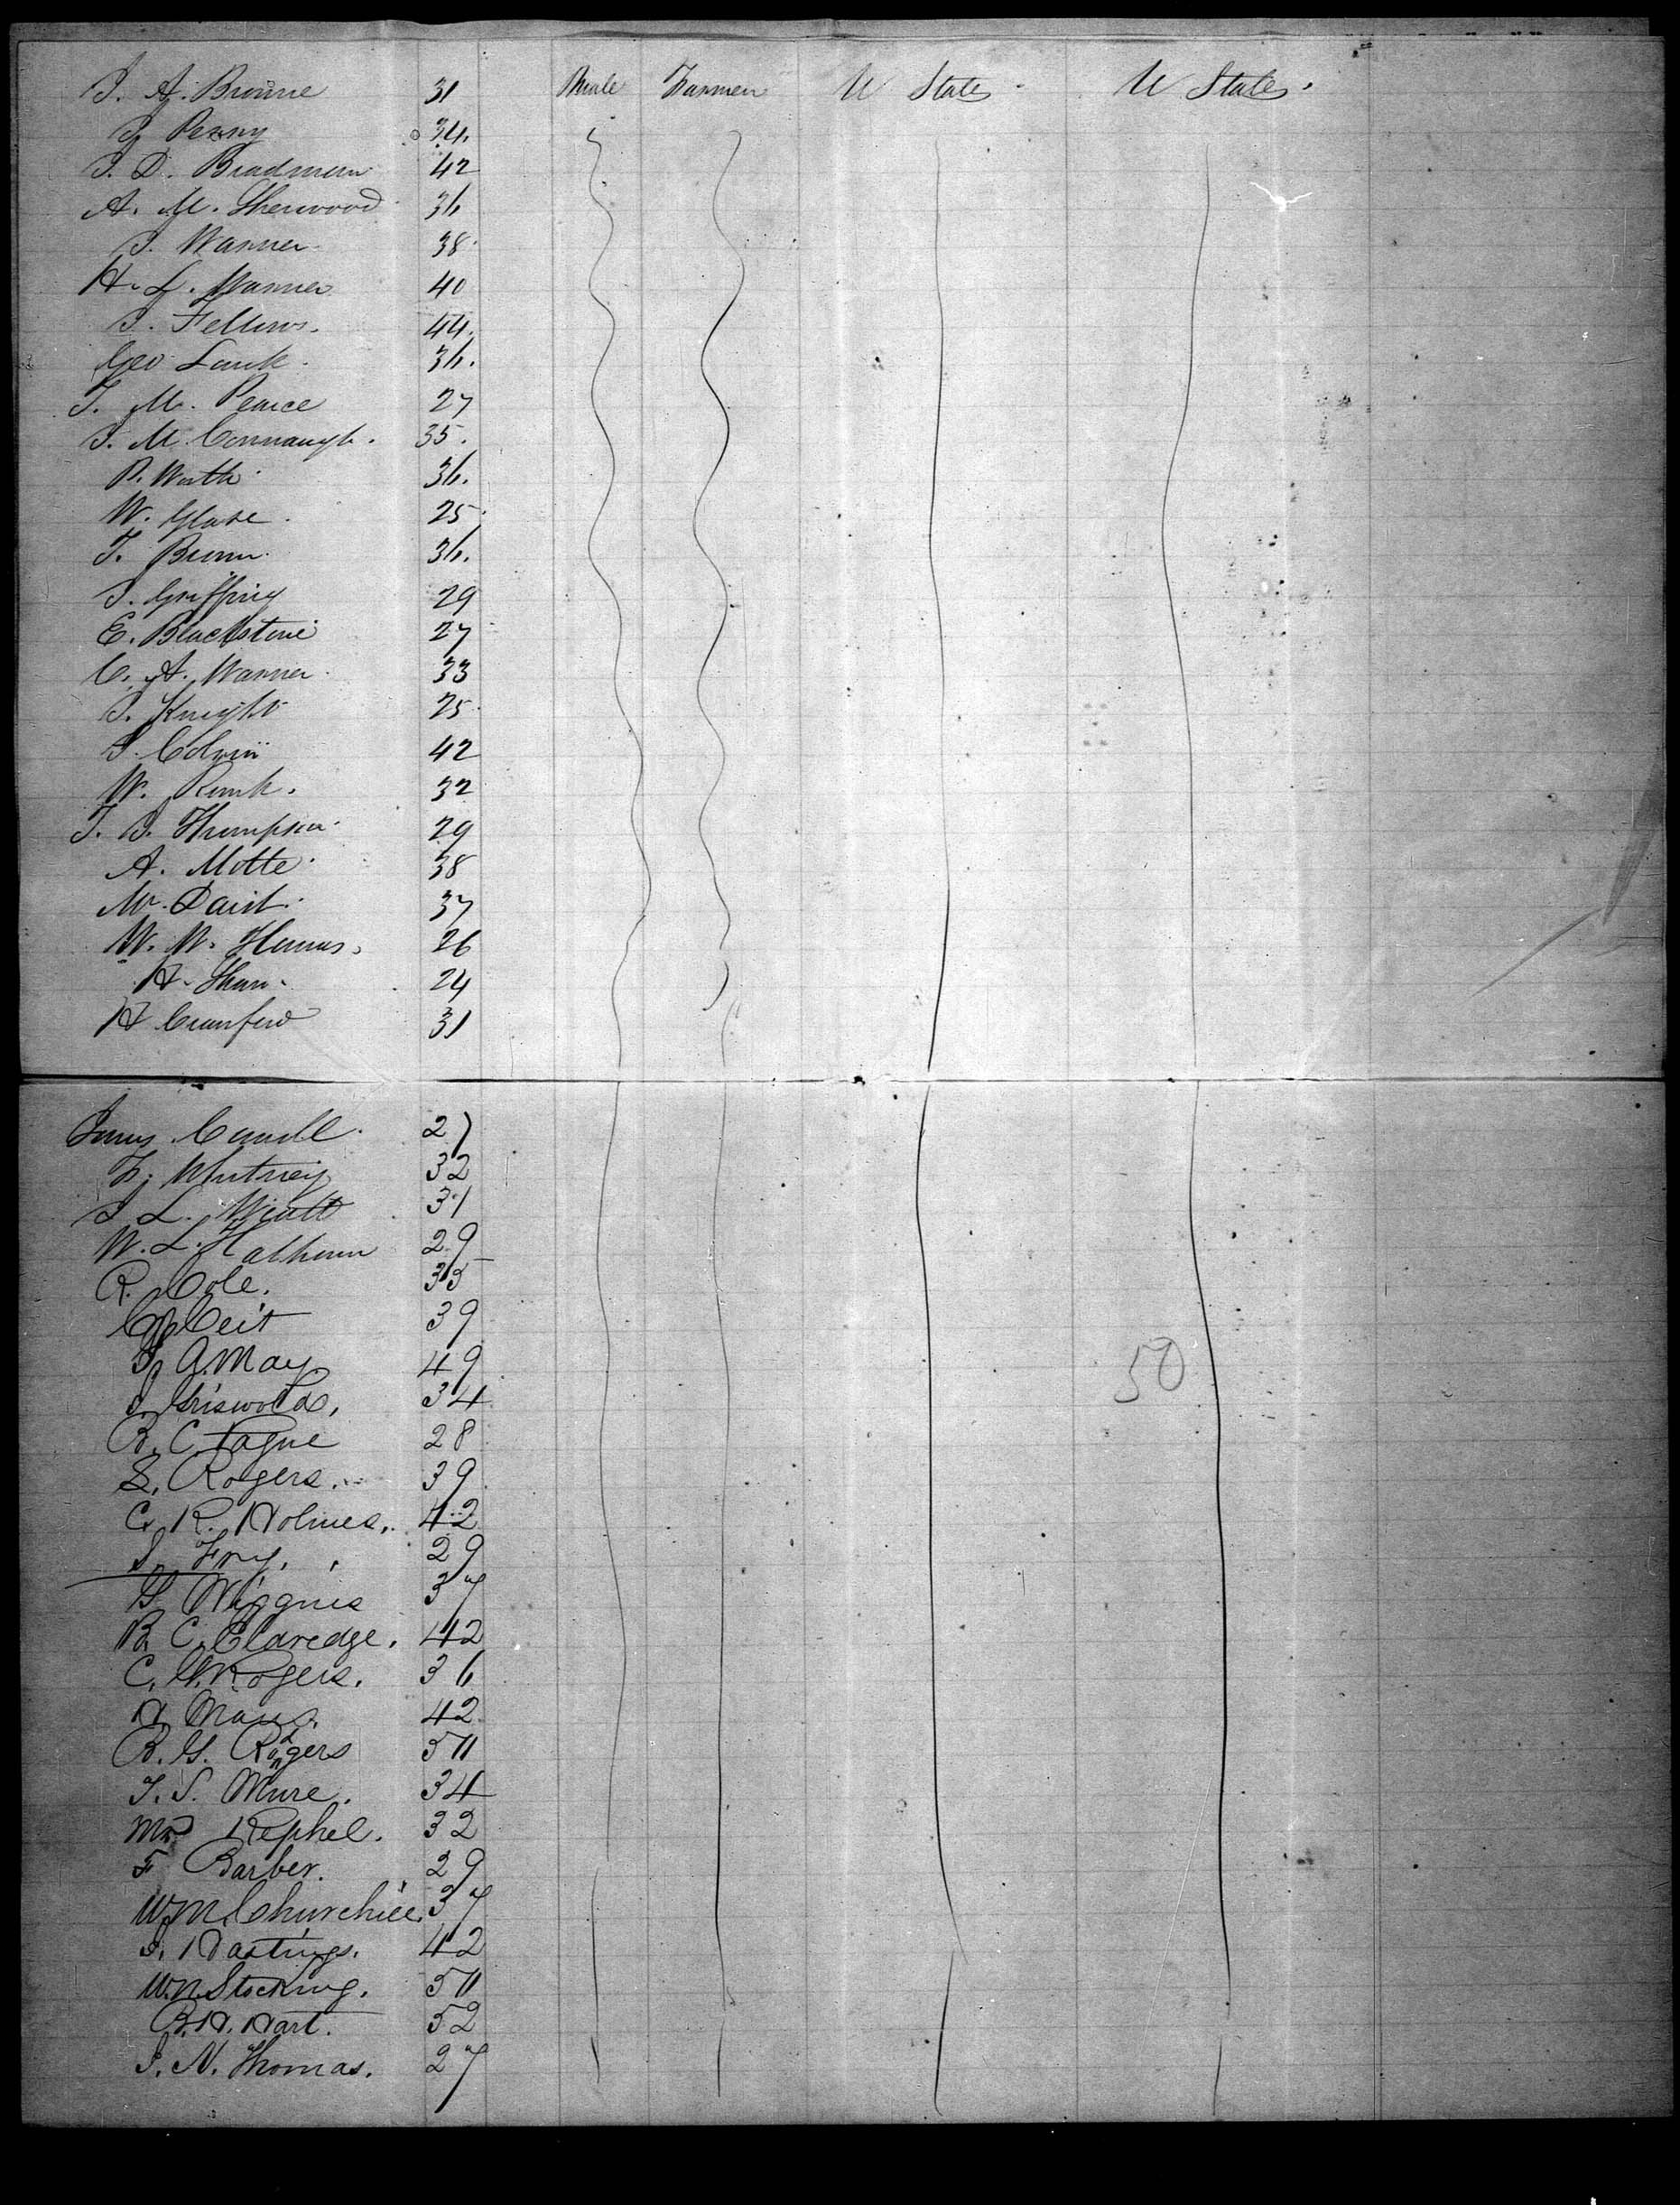 J. A. Browne 31 Male Farmer U State U State.
J Penny 34.
J. D. Bradmun 42
A. M. Sherwood 36
J. Warner 38
H. L. Warner 40
J. Fellows. 44.
Geo Lauk. 36.
T. M. Pearce 27
J. M. Connaugh. 35.
P. Worth 36.
W. Glase. 25
T. Brown. 36.
J. Griffing 29
E. Blackstone 27
C. A. Warner. 33
J. Knight 25
J. Colvin 42
W. Runk. 32
T. J. Thompson 29
A. Motte 38
M. David. 37
W. W. 26
H. Shaw. 24
H Crawford 31
James Carroll. 27
F. Whitney 32
J L. Wiatt 31
W. L. Halhoun 29
R. Cole. 35
Ceit 39
J. A. May 49
J. Griswold, 34
B. C. Tague 28
S. Rogers. 39
50
C. R. Holmes. 42
S. Fry. 29
G. Wiggins 37
B. C. Elaredge. 42
C. G. Rogers. 36
H. Maus. 42
B. G. Rogers 511
T. S. Mure. 34
Mr Kephel. 32
F Barber. 29
Wm Churchill. 37
J. Hastings. 42
W. N. Stocking. 511
B. H. Hart. 52
J. N. Thomas. 27